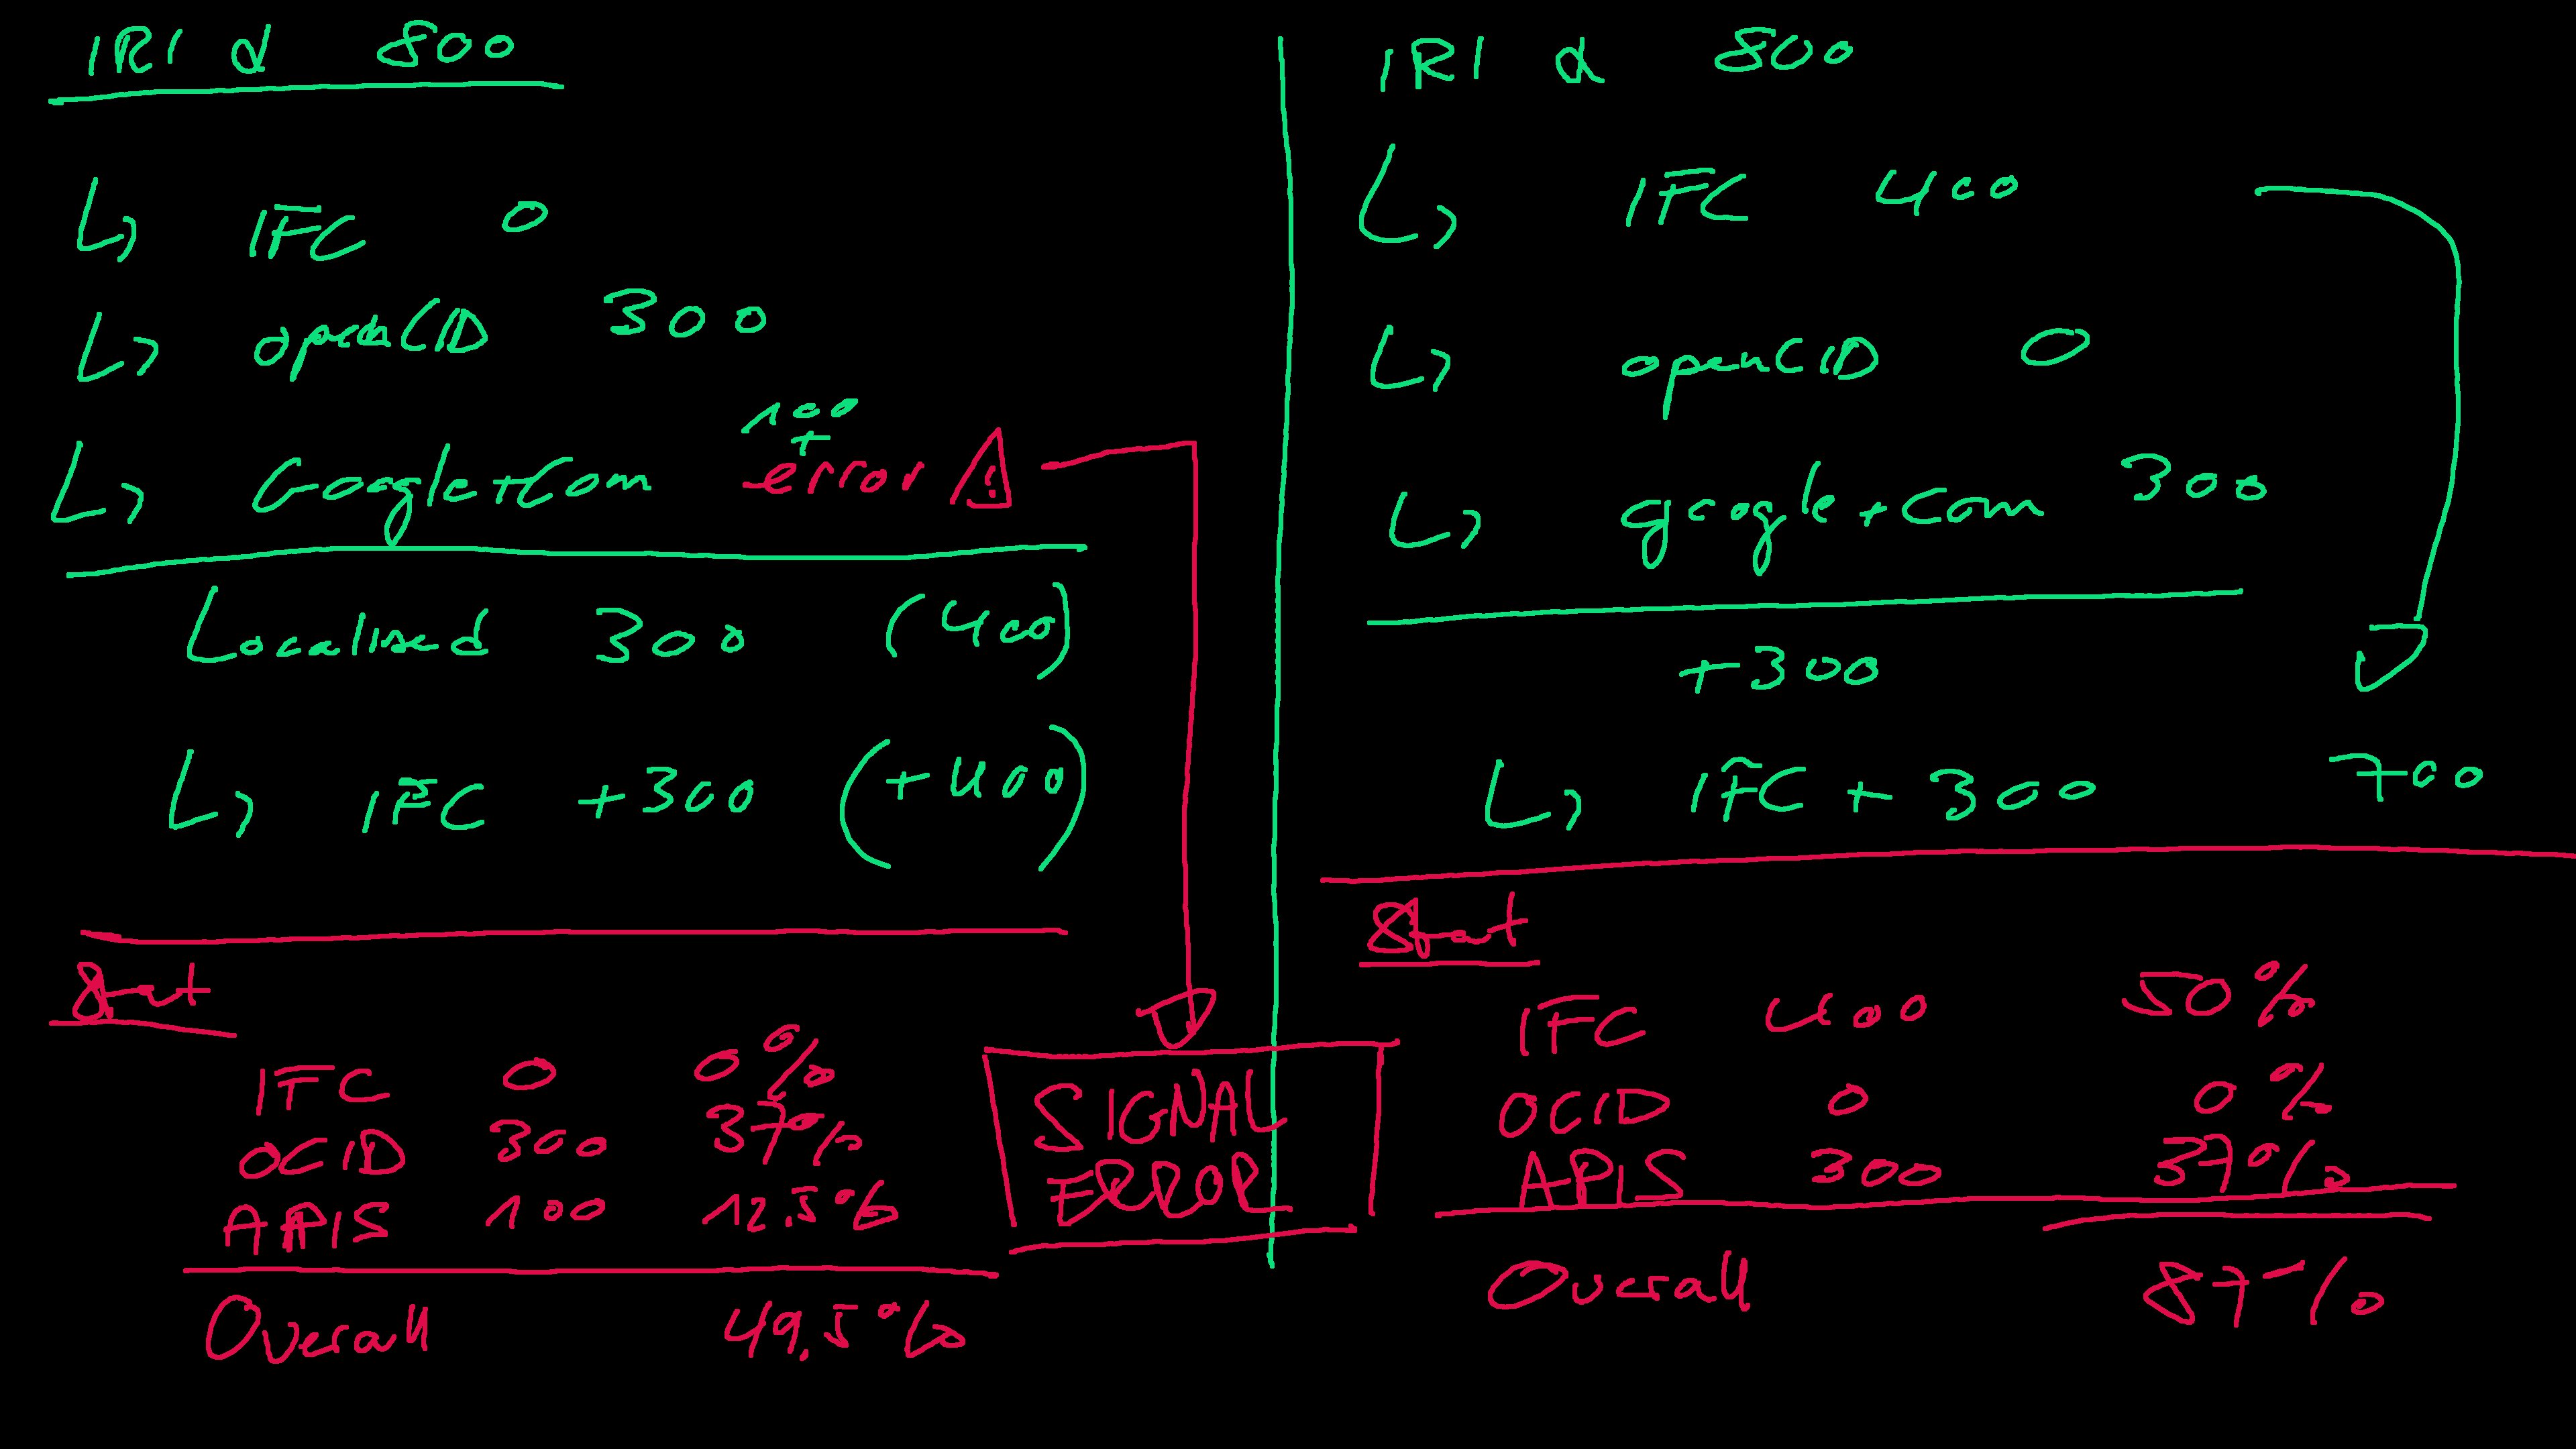 IRI α 800
↳ IFC 0
↳ openCID 300
100
+
↳ Google+Com error ⚠
Localised 300 (400)
↳ IFC +300 (+400)
Stat
IFC 0 0%
OCID 300 37%
APIS 100 12.5%
Overall 49.5%
SIGNAL
ERROR
IRI α 800
↳ IFC 400
↳ openCID 0
↳ google+com 300
+300
↳ IFC + 300 700
Stat
IFC 400 50%
OCID 0 0%
APIS 300 37%
Overall 87%